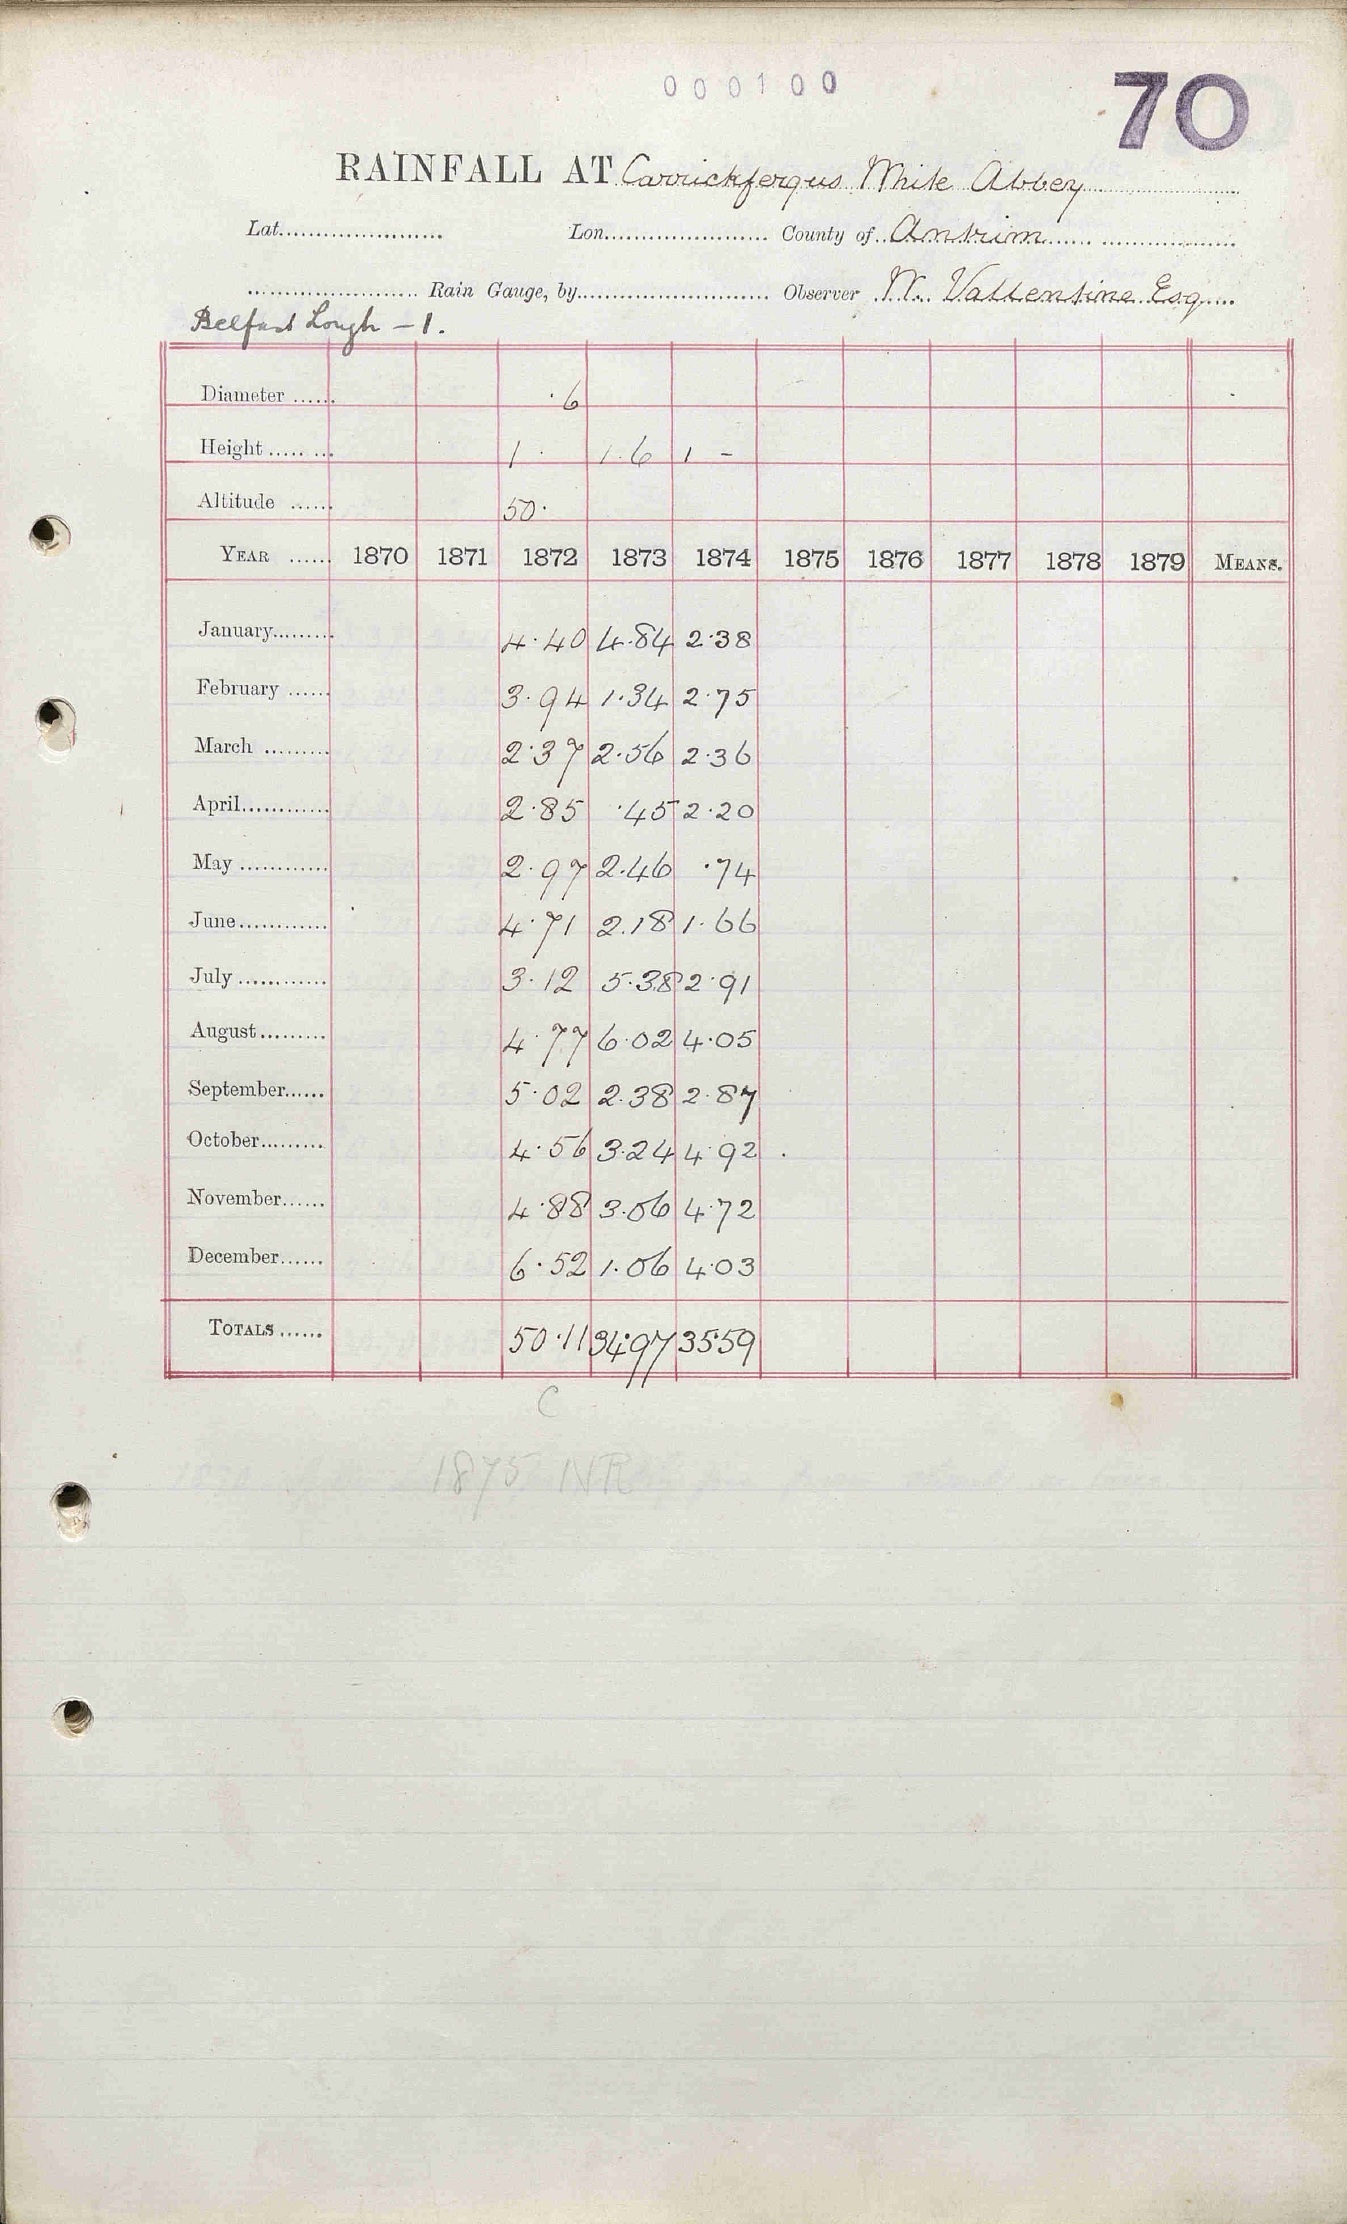 000100
70
RAINFALL AT Carrickfergus White Abbey
Lat. Lon. County of Antrim
Rain Gauge, by Observer W. Vallentine Esq
Belfast Lough - 1.
Diameter ...... ·6
Height ........ 1 · 1·6 1 -
Altitude ...... 50·
YEAR ...... 1870 1871 1872 1873 1874 1875 1876 1877 1878 1879 MEANS.
January......... 4·40 4·84 2·38
February ...... 3·94 1·34 2·75
March ......... 2·37 2·56 2·36
April............ 2·85 ·45 2·20
May ............ 2·97 2·46 ·74
June............ 4·71 2·18 1·66
July ............ 3·12 5·38 2·91
August......... 4·77 6·02 4·05
September...... 5·02 2·38 2·87
October......... 4·56 3·24 4·92
November...... 4·88 3·06 4·72
December...... 6·52 1·06 4·03
TOTALS ...... 50·11 34·97 35·59
C
1875 NR